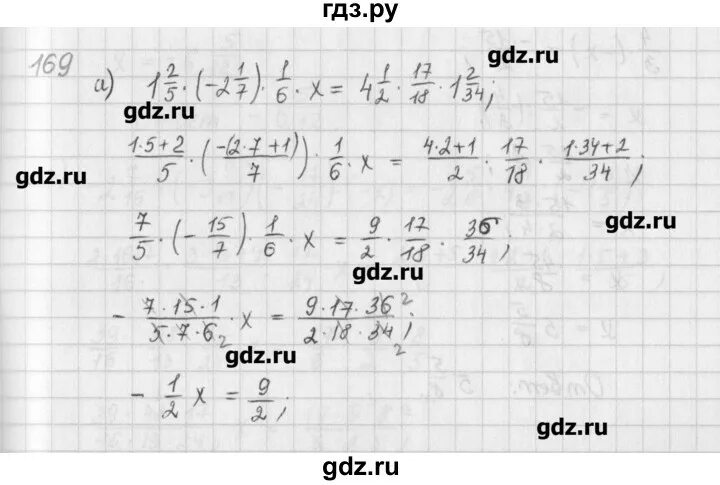 гдз.ру
169
а) 1 2/5 · (-2 1/7) · 1/6 · x = 4 1/2 · 17/18 · 1 2/34;
gdz.ru
gdz.ru
(1·5+2)/5 · (-(2·7+1)/7) · 1/6 · x = (4·2+1)/2 · 17/18 · (1·34+2)/34;
gdz.ru
7/5 · (-15/7) · 1/6 · x = 9/2 · 17/18 · 36/34;
gdz.ru
gdz.ru
- (7·15·1)/(5·7·6) 2 · x = (9·17·36 2)/(2·18·34 2);
gdz.ru
- 1/2 x = 9/2;
gdz.ru
gdz.ru